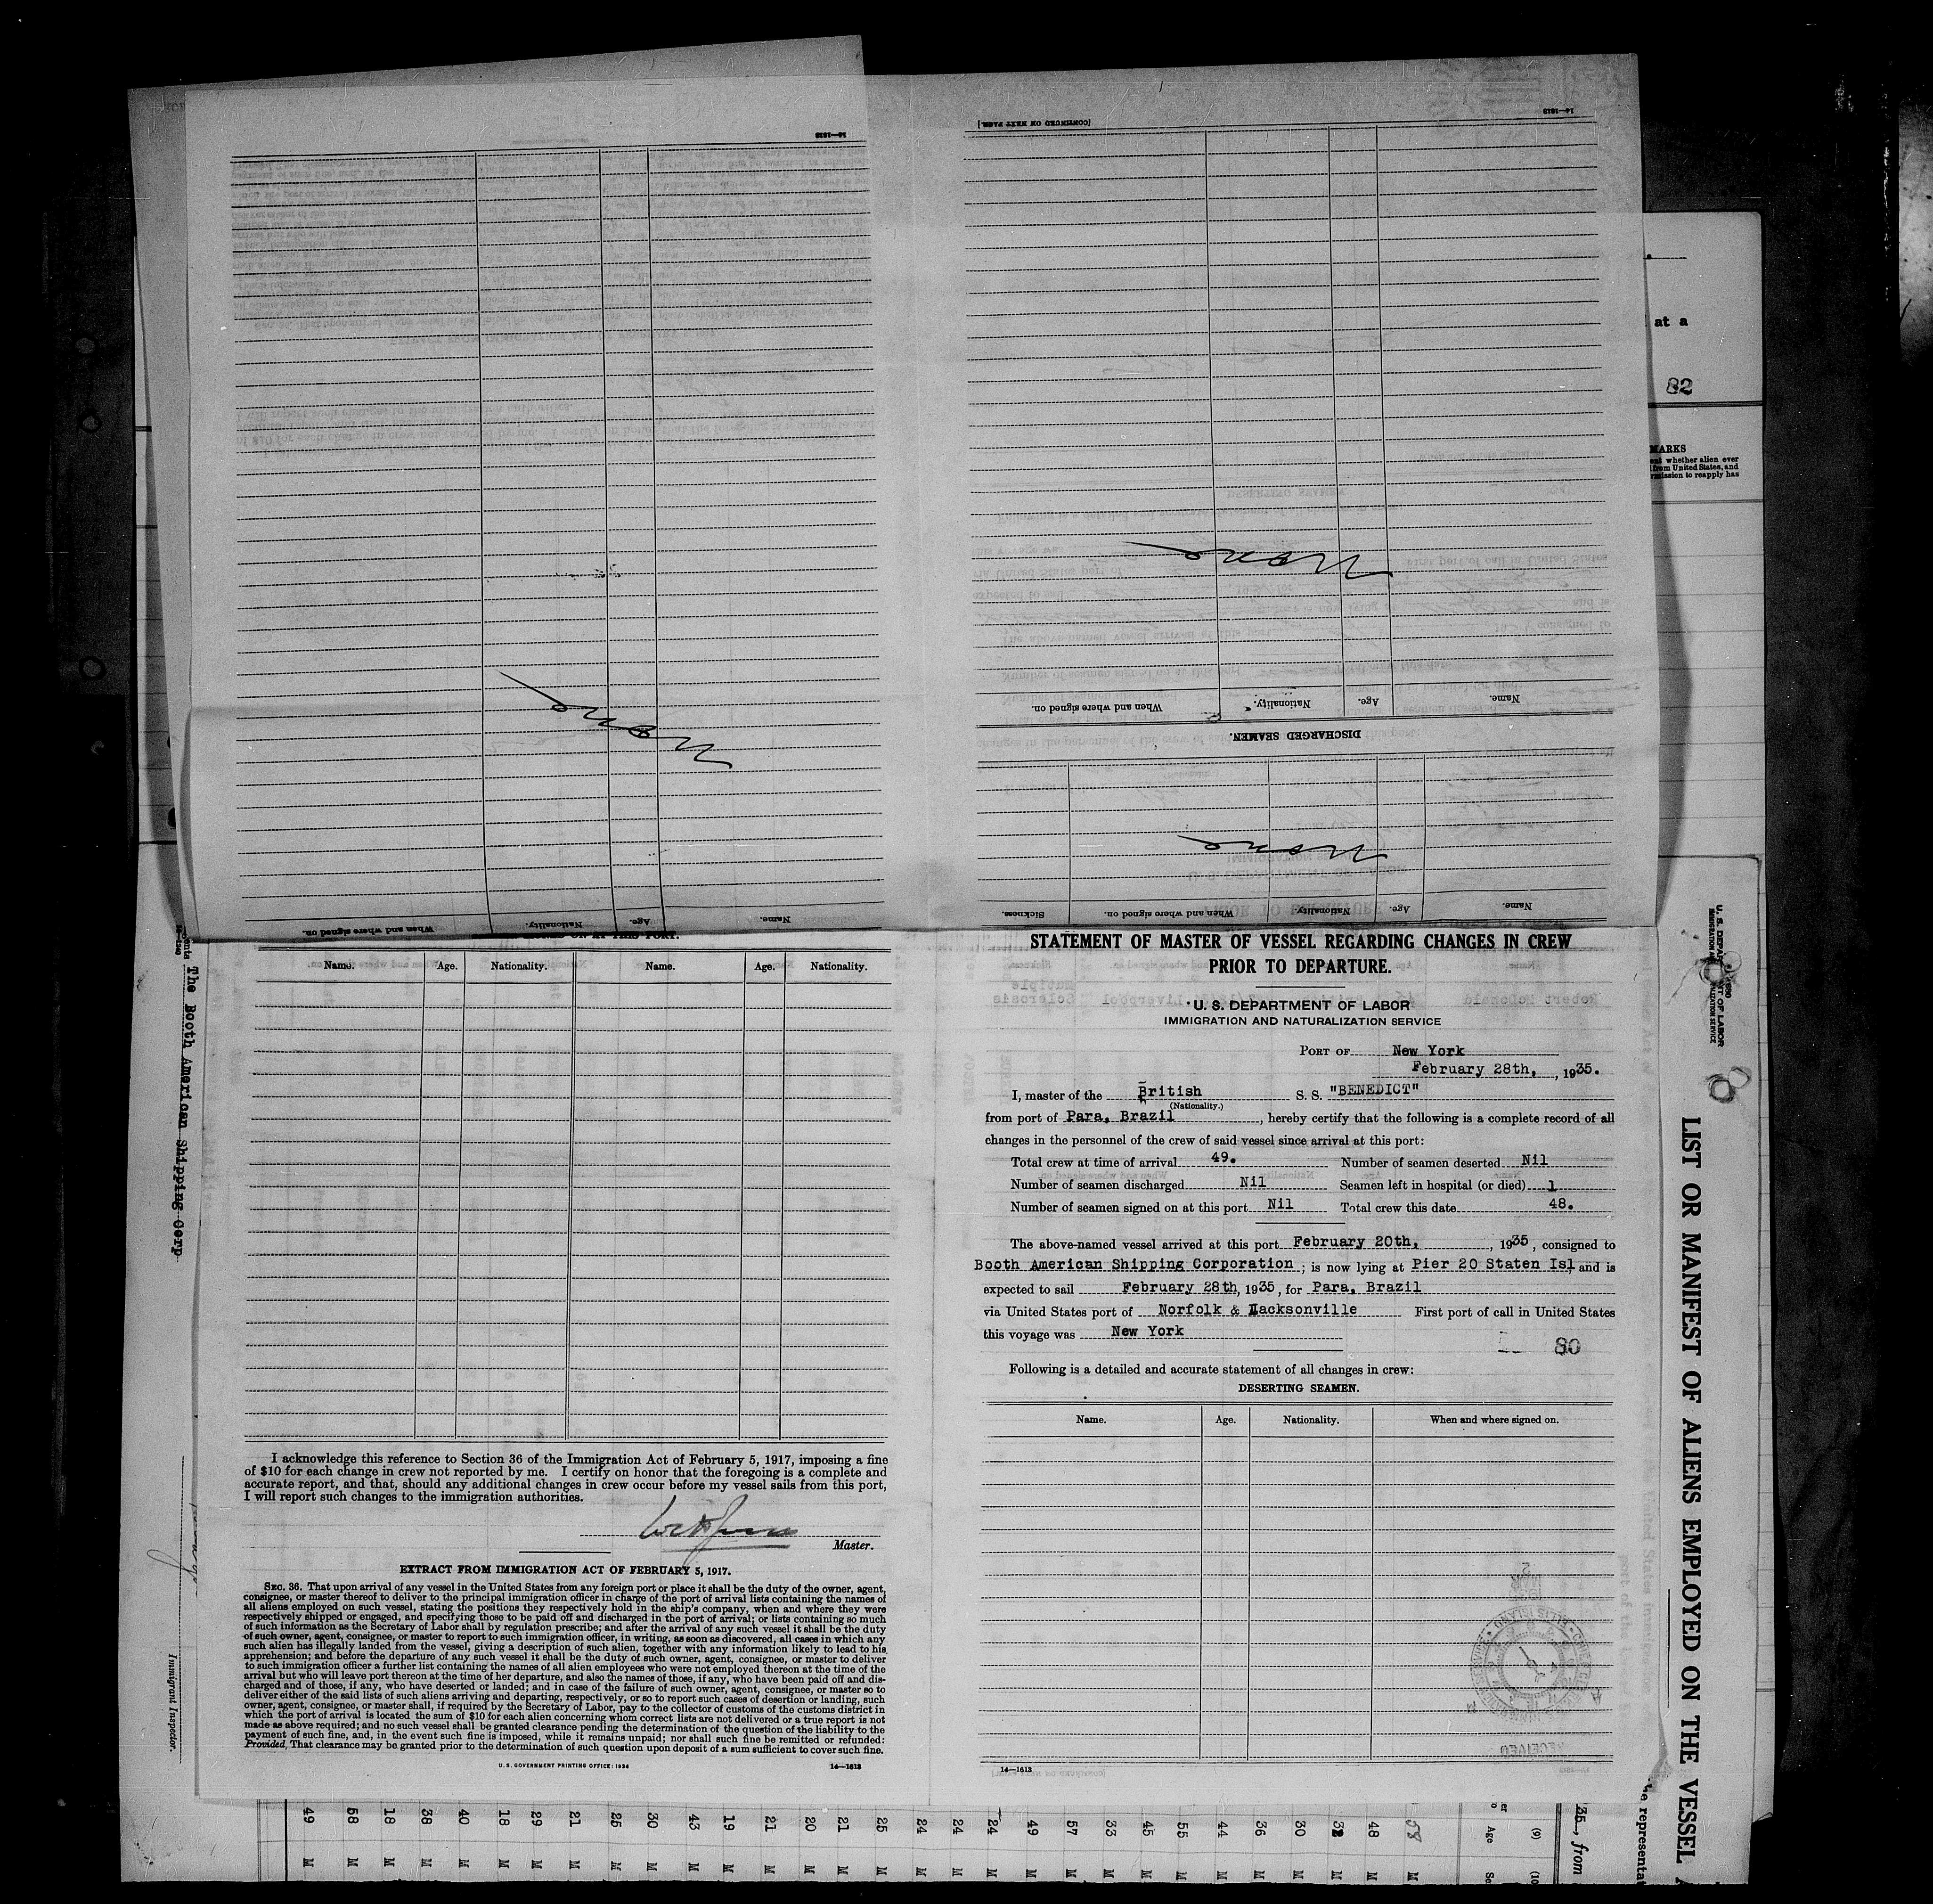 14—1613
Name. Age. Nationality. When and where signed on.
None
[CONTINUED ON NEXT PAGE.]
14—1613
None
Name. Age. Nationality. When and where signed on.
DISCHARGED SEAMEN.
None
Name. Age. Nationality. When and where signed on. Sickness.
at a
82
MARKS
whether alien ever
from United States, and
mission to reapply has
Name. Age. Nationality. Name. Age. Nationality.
I acknowledge this reference to Section 36 of the Immigration Act of February 5, 1917, imposing a fine
of $10 for each change in crew not reported by me. I certify on honor that the foregoing is a complete and
accurate report, and that, should any additional changes in crew occur before my vessel sails from this port,
I will report such changes to the immigration authorities.
Master.
EXTRACT FROM IMMIGRATION ACT OF FEBRUARY 5, 1917.
SEC. 36. That upon arrival of any vessel in the United States from any foreign port or place it shall be the duty of the owner, agent,
consignee, or master thereof to deliver to the principal immigration officer in charge of the port of arrival lists containing the names of
all aliens employed on such vessel, stating the positions they respectively hold in the ship's company, when and where they were
respectively shipped or engaged, and specifying those to be paid off and discharged in the port of arrival; or lists containing so much
of such information as the Secretary of Labor shall by regulation prescribe; and after the arrival of any such vessel it shall be the duty
of such owner, agent, consignee, or master to report to such immigration officer, in writing, as soon as discovered, all cases in which any
such alien has illegally landed from the vessel, giving a description of such alien, together with any information likely to lead to his
apprehension; and before the departure of any such vessel it shall be the duty of such owner, agent, consignee, or master to deliver
to such immigration officer a further list containing the names of all alien employees who were not employed thereon at the time of the
arrival but who will leave port thereon at the time of her departure, and also the names of those, if any, who have been paid off and dis-
charged and of those, if any, who have deserted or landed; and in case of the failure of such owner, agent, consignee, or master so to
deliver either of the said lists of such aliens arriving and departing, respectively, or so to report such cases of desertion or landing, such
owner, agent, consignee, or master shall, if required by the Secretary of Labor, pay to the collector of customs of the customs district in
which the port of arrival is located the sum of $10 for each alien concerning whom correct lists are not delivered or a true report is not
made as above required; and no such vessel shall be granted clearance pending the determination of the question of the liability to the
payment of such fine, and, in the event such fine is imposed, while it remains unpaid; nor shall such fine be remitted or refunded:
Provided, That clearance may be granted prior to the determination of such question upon deposit of a sum sufficient to cover such fine.
U. S. GOVERNMENT PRINTING OFFICE: 1934 14—1613
STATEMENT OF MASTER OF VESSEL REGARDING CHANGES IN CREW
PRIOR TO DEPARTURE.
U. S. DEPARTMENT OF LABOR
IMMIGRATION AND NATURALIZATION SERVICE
PORT OF New York
February 28th, , 1935.
I, master of the British S. S. "BENEDICT"
(Nationality.)
from port of Para, Brazil , hereby certify that the following is a complete record of all
changes in the personnel of the crew of said vessel since arrival at this port:
Total crew at time of arrival 49. Number of seamen deserted Nil
Number of seamen discharged Nil Seamen left in hospital (or died) 1
Number of seamen signed on at this port Nil Total crew this date 48.
The above-named vessel arrived at this port February 20th, , 1935 , consigned to
Booth American Shipping Corporation ; is now lying at Pier 20 Staten Isl and is
expected to sail February 28th, 1935 , for Para, Brazil
via United States port of Norfolk & Jacksonville First port of call in United States
this voyage was New York
80
Following is a detailed and accurate statement of all changes in crew:
DESERTING SEAMEN.
Name. Age. Nationality. When and where signed on.
14—1613
The Booth American Shipping Corp
Immigrant Inspector.
LIST OR MANIFEST OF ALIENS EMPLOYED ON THE VESSEL
35, from
representat
(9) (10
Age Se
49 58 18 38 40 18 29 21 25 30 43 19 21 20 21 25 24 24 24 49 57 33 45 55 44 36 30 32 48 58
M M M M M M M M M M M M M M M M M M M M M M M M M M M M M M